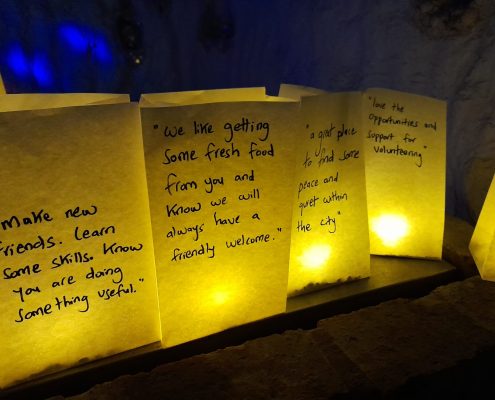 Make new
friends. Learn
some skills. Know
you are doing
something useful."
"We like getting
some fresh food
from you and
know we will
always have a
friendly welcome."
"a great place
to find some
peace and
quiet within
the city"
"love the
opportunities and
support for
volunteering"